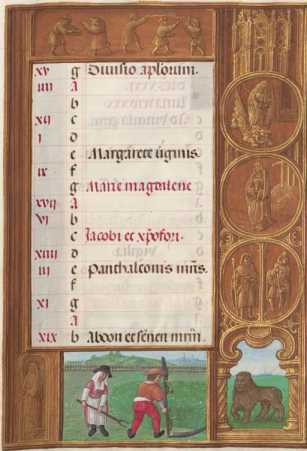 xv g Divisio aplorum.
iiii A
b
xii c
i d
e Margarete virginis
ix f
g Marie magdalene
xvii A
vi b
c Jacobi et xpofori.
xiiii d
iii e Panthaleonis mris.
f
xi g
A
xix b Abdon et sennen mrm